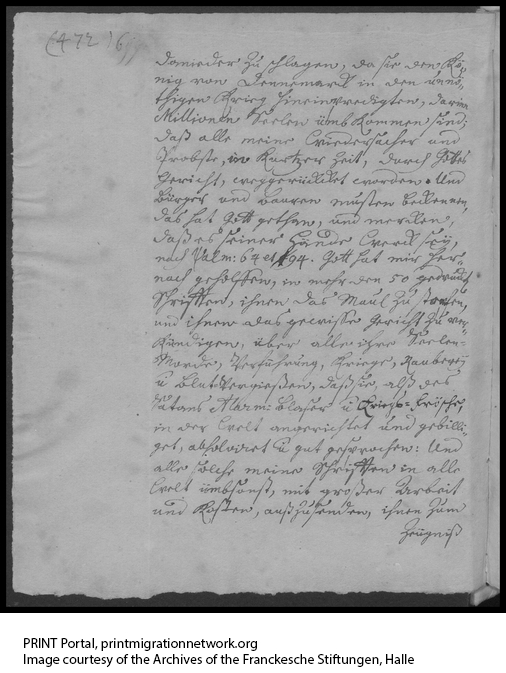 (472) 6
darnieder zu schlagen, da sie den Kö-
nig von Dennemarck in den unnö-
thigen Krieg hineinpredigten, darinn
Millionen Seelen umbkommen sind;
daß alle meine Wiedersacher und
Probste, in kurtzer Zeit, durch Gottes
Gericht, weggerücket worden. Und
Bürger und Bauren musten bekennen,
das hat Gott gethan, und mercken,
daß es seiner Hände Werck sey,
nach Psalm: 64 et 94. Gott hat mir her-
nach geholffen, in mehr den 50 gedruckt
Schrifften, ihnen das Maul zu stopfen,
und ihnen das gewisse Gericht zu ver-
kündigen, über alle ihre Seelen-
Morde, Verführung, Kriege, Rauberey
u Blutvergießen, daß sie, alß des
Satans Alarm-Blaser u Kriegs-Frösche,
in der Welt angerichtet und gebilli-
get, absolviret u gut gesprochen: Und
alle solche meine Schrifften in alle
Welt umbsonst, mit großer Arbeit
und Kosten, außzusenden, ihnen zum
Zeugniß
PRINT Portal, printmigrationnetwork.org
Image courtesy of the Archives of the Franckesche Stiftungen, Halle